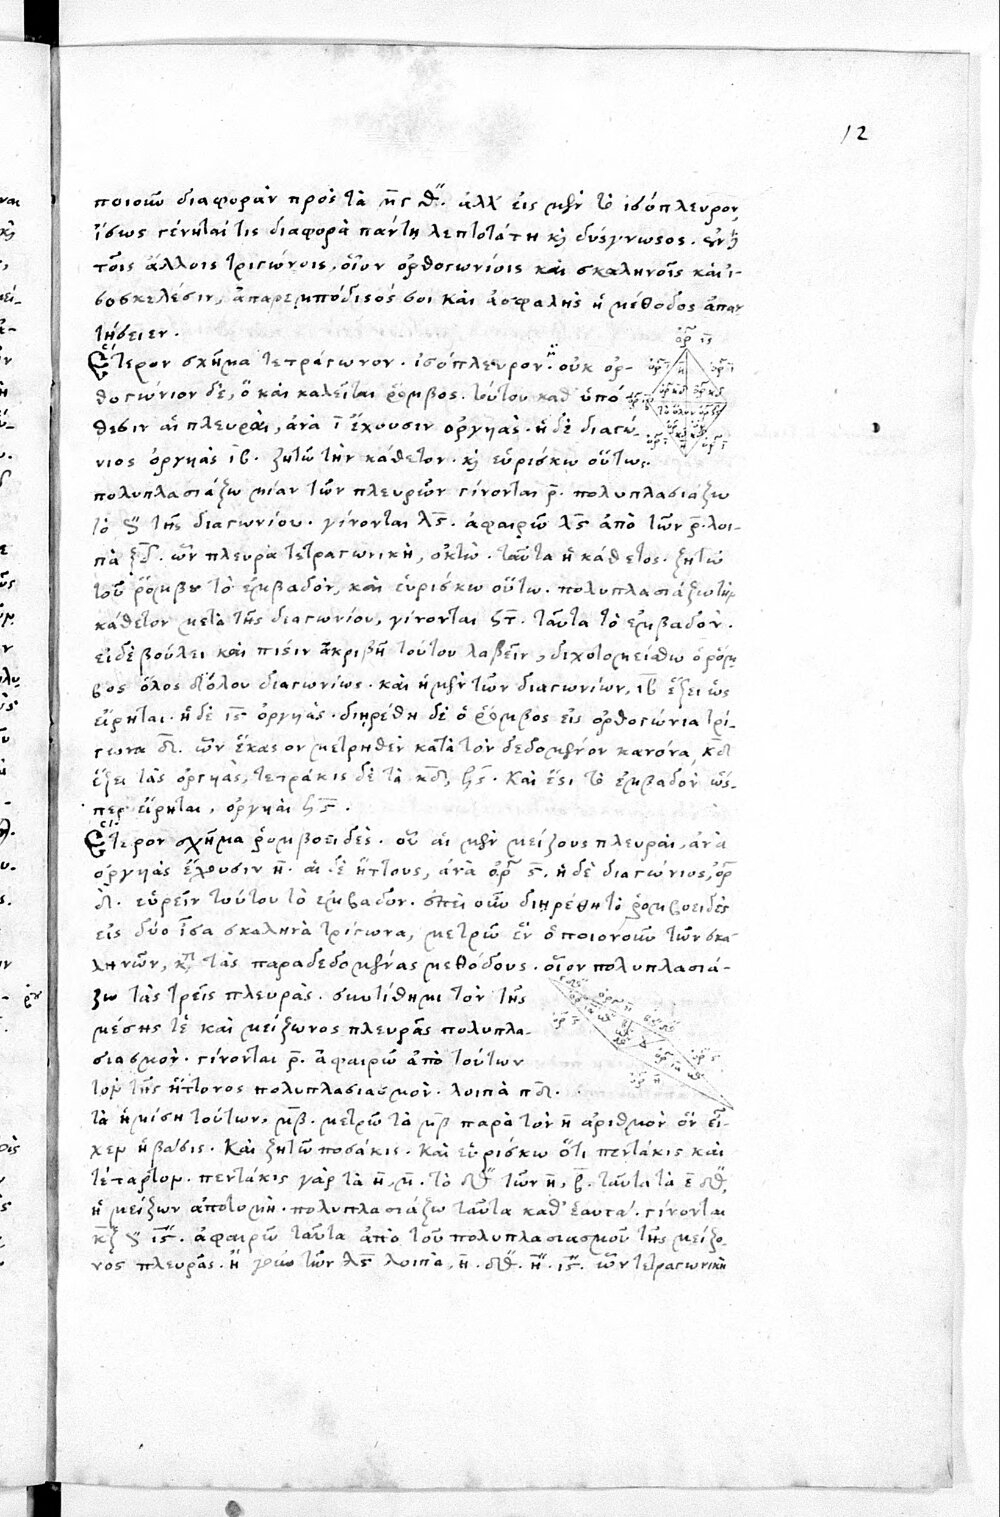 12
ποιοῦν διαφορὰν πρὸς τὰ η̄ ϛ θ″. ἀλλ' εἰς μὲν τὸ ἰσόπλευρον,
ἴσως γένηταί τις διαφορὰ πάντη λεπτοτάτη κỳ δυσγνωσος. ἐν
τοῖς ἄλλοις τριγώνοις, οἷον ὀρθογωνίοις καὶ σκαληνοῖς καὶ ἰ-
σοσκελέσιν, ἀπαρεμπόδιςός σοι καὶ ἀσφαλὴς ἡ μέθοδος ἀπαν
τήσειεν.
Ἕτερον σχῆμα τετράγωνον. ἰσόπλευρον. οὐκ ὀρ-
θογώνιον δὲ, ὃ καὶ καλεῖται ῥόμβος. τούτου καθ' ὑπό
θεσιν αἱ πλευραὶ, ἀνὰ ῑ ἔχουσιν ὀργυιάς. ἡ δὲ διαγώ-
νιος ὀργυιὰς ιβ. ζητῶ τὴν κάθετον. καὶ εὑρίσκω οὕτως.
πολυπλασιάζω μίαν τῶν πλευρῶν γίνονται ρ̄. πολυπλασιάζω
τὸ 𐅶 τῆς διαγωνίου. γίνονται λϛ̄. ἀφαιρῶ λϛ̄ ἀπὸ τῶν ρ̄. λοι-
πὰ ξδ̄. ὧν πλευρὰ τετραγωνικὴ, ὀκτώ. ταῦτα ἡ κάθετος. ζητῶ
τοῦ ῥόμβου τὸ ἐμβαδὸν, καὶ εὑρίσκω οὕτω. πολυπλασιάζω τὴν
κάθετον μετὰ τῆς διαγωνίου, γίνονται ϟϛ̄. ταῦτα τὸ ἐμβαδόν.
εἰ δὲ βούλει καὶ πίςιν ἀκριβῆ τούτου λαβεῖν, διχοτομείσθω ὁ ῥόμ
βος ὅλος δι' ὅλου διαγωνίως. καὶ ἡ μὲν τῶν διαγωνίων, ιβ̄ ἕξει ὡς
εἴρηται. ἡ δὲ ιϛ̄ ὀργυιάς. διῃρέθη δὲ ὁ ῥόμβος εἰς ὀρθογώνια τρί-
γωνα δ̄. ὧν ἕκαςον μετρηθὲν κατὰ τὸν δεδομένον κανόνα, κδ̄
ἕξει τὰς ὀργυιάς, τετράκις δὲ τὰ κδ̄, ϟϛ̄. καὶ ἔςι τὸ ἐμβαδὸν ὥς-
περ εἴρηται, ὀργυιαὶ ϟϛ̄.
Ἕτερον σχῆμα ῥομβοειδές. οὗ αἱ μὲν μείζους πλευραὶ, ἀνὰ
ὀργυιὰς ἔχουσιν η̄. αἱ δὲ ἥττους, ἀνὰ ὀργ ϛ̄. ἡ δὲ διαγώνιος, ὀργ
ῑ. εὑρεῖν τούτου τὸ ἐμβαδόν. ἐπεὶ οὖν διῃρέθη τὸ ῥομβοειδὲς
εἰς δύο ἴσα σκαληνὰ τρίγωνα, μετρῶ ἓν ὁποιονοῦν τῶν σκα
ληνῶν, κατὰ τὰς παραδεδομένας μεθόδους. οἷον πολυπλασιά-
ζω τὰς τρεῖς πλευράς. συντίθημι τὸν τῆς
μέσης τὲ καὶ μείζονος πλευρᾶς πολυπλα-
σιασμόν. γίνονται ρ̄. ἀφαιρῶ ἀπὸ τούτων
τὸν τῆς ἥττονος πολυπλασιασμόν. λοιπὰ πδ̄.
τὰ ἡμίση τούτων, μβ̄. μετρῶ τὰ μβ̄ παρὰ τὸν η̄ ἀριθμὸν ὃν εἶ-
χεν ἡ βάσις. καὶ ζητῶ ποσάκις. καὶ εὑρίσκω ὅτι πεντάκις καὶ
τέταρτον. πεντάκις γὰρ τὰ η̄, μ̄. τὸ δ″ τῶν η̄, β̄. ταῦτα τὰ ε̄ δ″,
ἡ μείζων ἀποτομή. πολυπλασιάζω ταῦτα καθ' ἑαυτά. γίνονται
κζ̄ 𐅶 ιϛ″. ἀφαιρῶ ταῦτα ἀπὸ τοῦ πολυπλασιασμοῦ τῆς μείζο-
νος πλευρᾶς. ἤγουν τῶν λϛ̄ λοιπὰ, η̄. δ″. η″. ιϛ″. ὧν τετραγωνικὴ